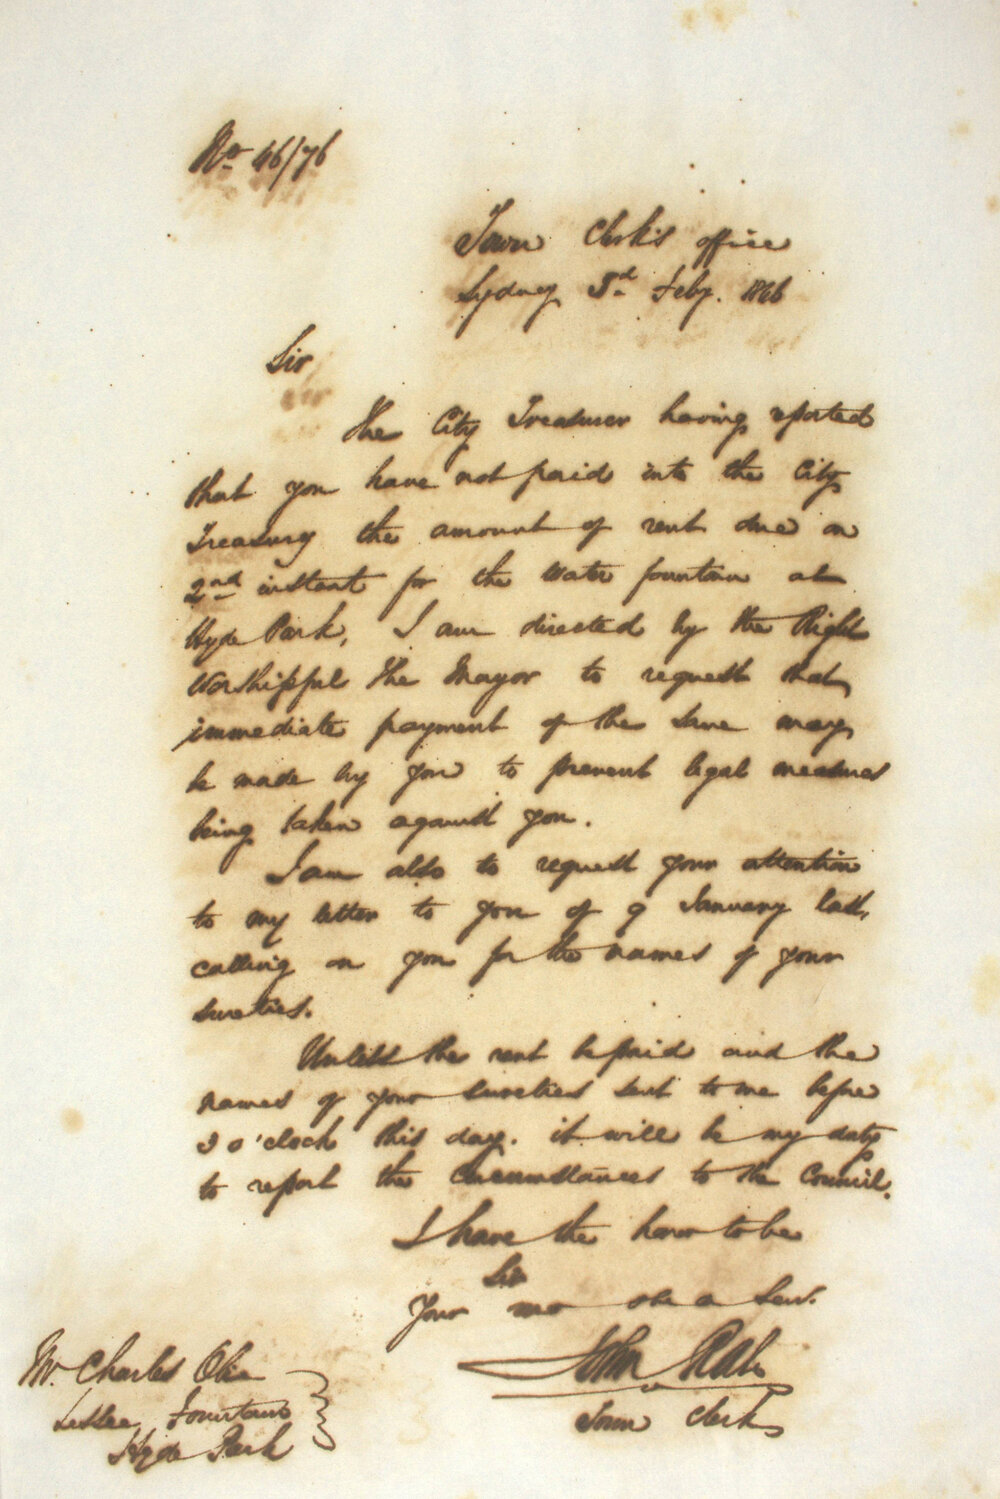 No 46/76
Town Clerk's office
Sydney 3d Feby. 1866
Sir
The City Treasurer having reported
that you have not paid into the City
Treasury the amount of rent due on
2nd instant for the Water fountain at
Hyde Park, I am directed by the Right
Worshipful The Mayor to request that
immediate payment of the same may
be made by you to prevent legal measures
being taken against you.
I am also to request your attention
to my letter to you of 9 January last,
calling on you for the names of your
sureties.
Unless the rent be paid and the
names of your sureties sent to me before
3 o'clock this day. it will be my duty
to report the Circumstances to the Council.
I have the honor to be
Sir
Your mo obe Serv.
John
Town Clerk
Mr. Charles
Lessee, Fountain
Hyde Park